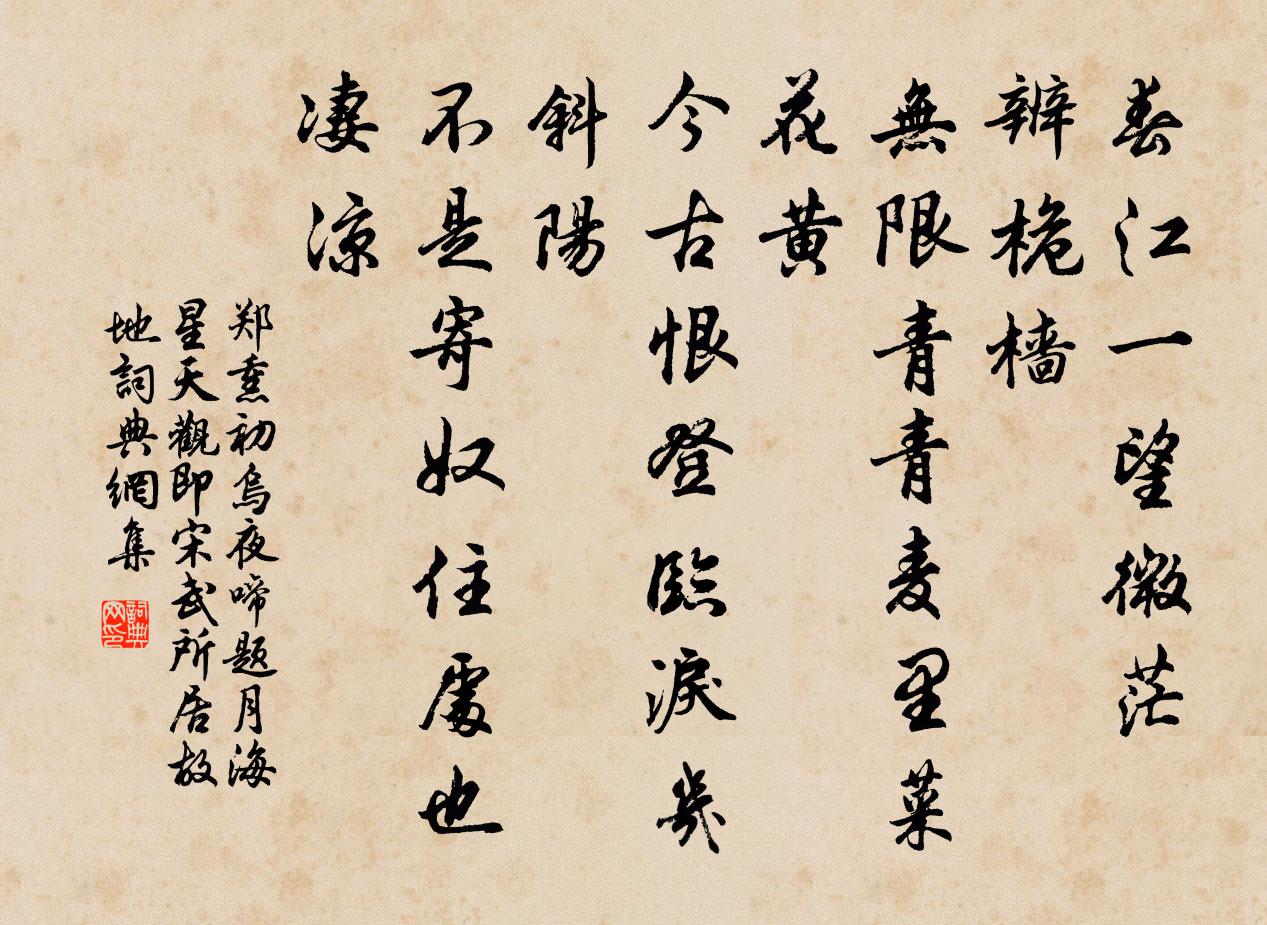 春江一望微茫
辨桅檣
無限青青麦里菜
花黄
今古恨登臨淚幾
斜陽
不是寄奴住處也
凄凉
郑熏初烏夜啼题月海
星天觀即宋武所居故
地詞典網集
詞典
网印